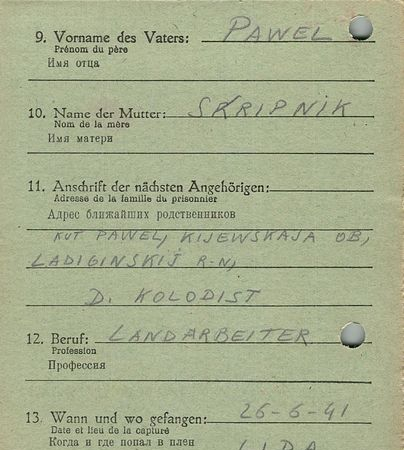 9. Vorname des Vaters: PAWEL
Prénom du père
Имя отца
10. Name der Mutter: SKRIPNIK
Nom de la mère
Имя матери
11. Anschrift der nächsten Angehörigen:
Adresse de la famille du prisonnier
Адрес ближайших родственников
KUT PAWEL, KIJEWSKAJA OB,
LADIGINSKIJ R-N,
D. KOLODIST
12. Beruf: LANDARBEITER
Profession
Профессия
13. Wann und wo gefangen: 26-6-41
Date et lieu de la capture
Когда и где попал в плен LIDA